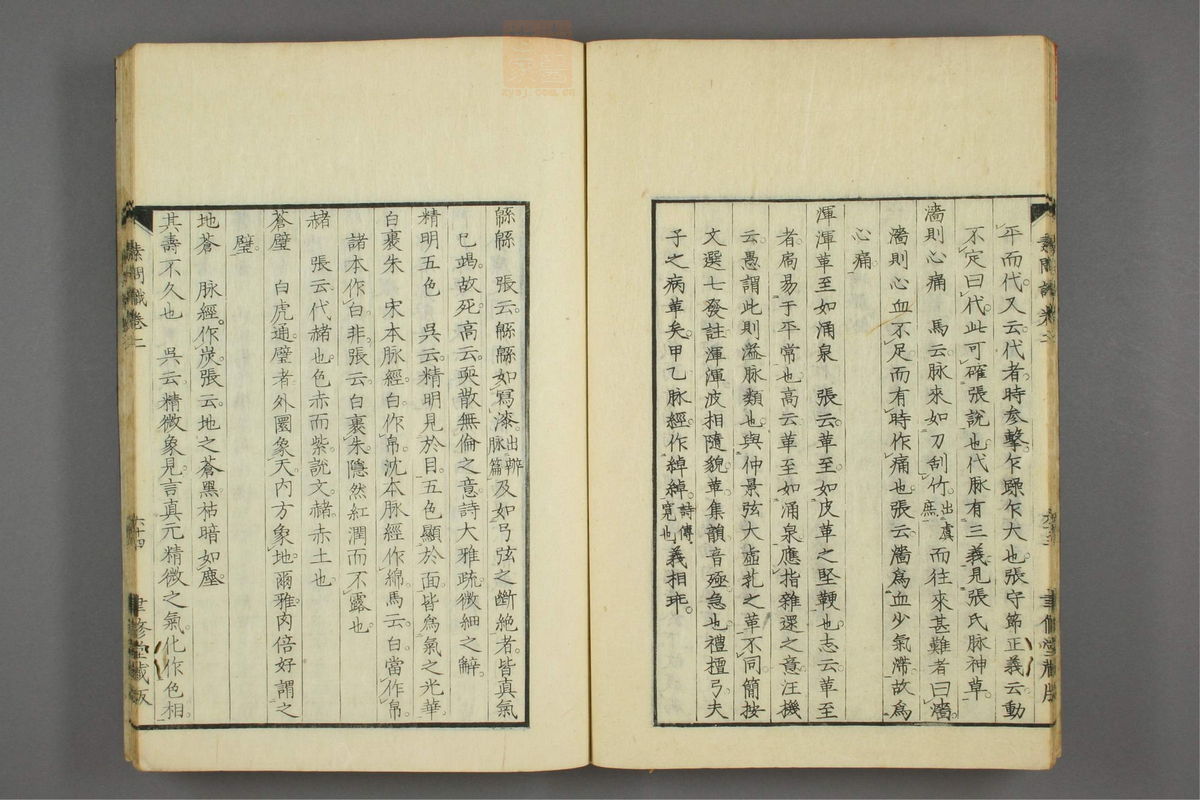 平而代。又云。代者。時參擊。乍躁乍大也。張守節正義云。動
不定曰代。此可確張說也。代脉有三義。見張氏脉神草。
濇則心痛　馬云。脉來如刀刮竹。出虞庶而往來甚難者。曰濇。
濇則心血不足。而有時作痛也。張云。濇爲血少氣滯。故爲
心痛。
渾渾革至如涌泉　張云。革至如皮革之堅鞕也。志云。革至
者。扁易于平常也。高云。革至如涌泉。應指雜還之意。汪機
云。愚謂此則溢脉類也。與仲景弦大虛芤之革不同。簡按
文選七發註。渾渾波相隨貌。革。集韻音殛。急也。禮檀弓。夫
子之病革矣。甲乙脉經。作綽綽。詩傳寬也義相乖。
緜緜　張云。緜緜如寫漆。出辨脉篇及如弓弦之斷絶者。皆眞氣
已竭。故死。高云。耎散無倫之意。詩大雅疏。微細之辭。
精明五色　吳云。精明見於目。五色顯於面。皆爲氣之光華。
白裹朱　宋本脉經。白作帛。沈本脉經。作綿。馬云。白當作帛。
諸本作白非。張云。白裹朱。隱然紅潤而不露也。
赭　張云。代赭也。色赤而紫。說文。赭。赤土也。
蒼璧　白虎通。璧者。外圜象天。內方象地。爾雅。肉倍好。謂之
璧。
地蒼　脉經作炭。張云。地之蒼黑。枯暗如塵。
其壽不久也　吳云。精微象見。言眞元精微之氣。化作色相。
素問識卷二
六十四
聿修堂藏版